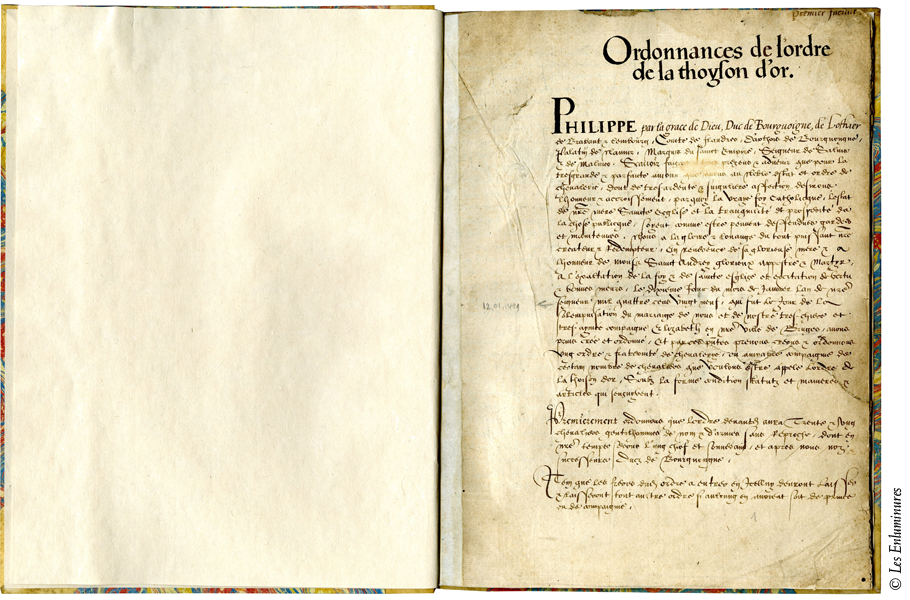 premier
Ordonnances de lordre
de la thoyson d'or.
PHILIPPE par la grace de Dieu, Duc de Bourgoigne, de Lothier
de Brabant & Lembourg, Conte de flandres, Darthois de Bourgoingne,
Palatin de Namur, Marquis du sainct Empire, Seigneur de Salins
& de Malines. Scavoir presens & advenir que pour la
tresgrande & parfaite amour que avons au noble estat et ordre de
chevalerie, dont de tresardente & singuliere affection desirons
lhonneur & accroissement, parquoy la vraye foy Catholicque, lestat
de nre mere Saincte Eglise et la tranquilité et prosperité de
la chose publicque, soyent comme estre peuvent deffendues gardees
et maintenues. Nous a la gloire & louange du tout puissant nre
createur & Redempteur, En reverence de sa glorieuse mere & a
lhonneur de monsr Sainct Andrey glorieux appostre & Martyr,
A lexaltation de la foy & de saincte esglise et excitation de vertu
& bonnes meurs, le dixiesme Jour du mois de Janvier Lan de nre
Seigneur mil quattre cens vingt neuf, qui fut le Jour de la
Solempnisation du mariaige de nous et de nostre tres chiere et
12.01.1429
tres aymee compaigne Elizabeth en nre ville de Bruges, avons
prins cree et ordonné, Et par ces ptes prenons creons & ordonnons
ung ordre & fraternité de chevalerie, ou amyable compaignie de
certain nombre de chevaliers que voulons estre appelé lordre de
la thoison d'or, Soubz la forme condition statutz et manieres &
articles qui sensuyvent.
Premierement ordonnons que lordre devandt aura Trente & ung
chevaliers gentilhommes de nom & d'armes sans Reproche, dont en
nre temps serons l'ung chef et souverain, et apres nous noz
successeurs Ducz de Bourgoingne.
Item que les freres dudt ordre a entree en Icelluy devront laisser
& laisseront tout aultre ordre si aulcung en avoient soit de prince
ou de compaignie.
© Les Enluminures